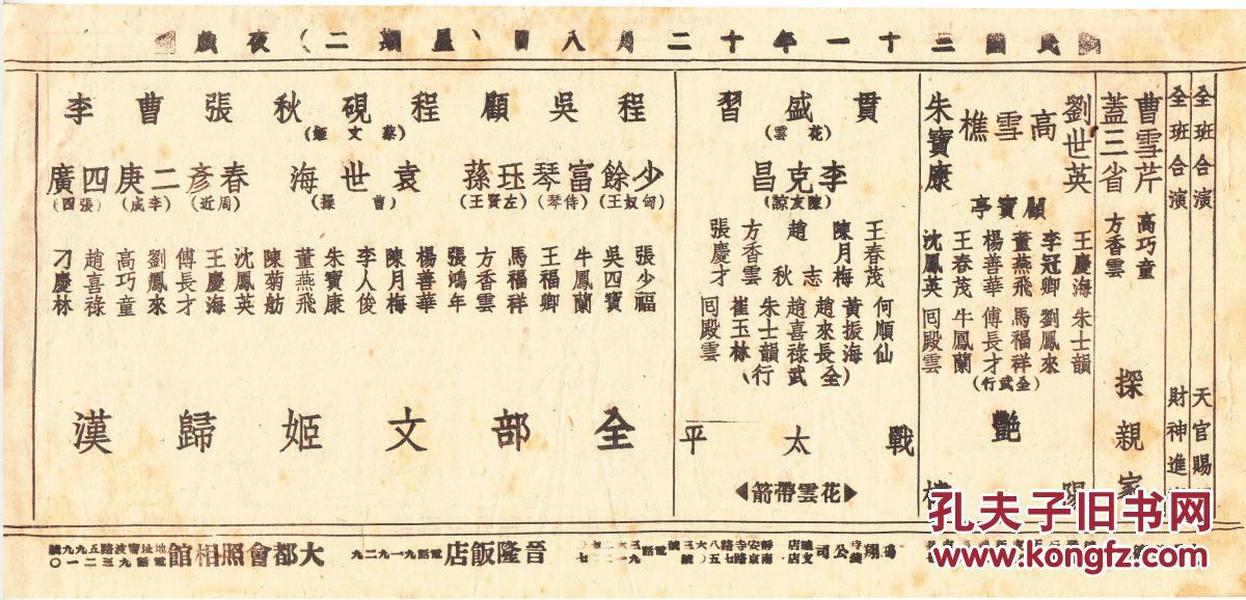 民國三十一年十二月八日（星期二）夜戲
全班合演 天官賜
全班合演 財神進
曹雪芹 高巧童
蓋三省 方香雲
探親家
劉世英 高雪樵 朱寶康
顧寶亭
王慶海 李冠卿 董燕飛 楊善華 王春茂 沈鳳英
朱士韻 劉鳳來 馬福祥 傅長才 牛鳳蘭 冋殿雲
（全武行）
艷陽樓
貫盛習
（花雲）
李克昌
（陳友諒）
王春茂 陳月梅 趙志秋 方香雲 張慶才
何順仙 黃振海 趙來長 趙喜祿 朱士韻 崔玉林 冋殿雲
（全武行）
戰太平
花雲帶箭
程少餘（匈奴王） 吳富琴（侍琴） 顧珏蓀（左賢王）
程硯秋（蔡文姬）
袁世海（曹操）
張春彥（周近） 曹二庚（李成） 李四廣（張四）
張少福 吳四寶 牛鳳蘭 王福卿 馬福祥 方香雲 張鴻年 楊善華 陳月梅 李人俊 朱寶康 董燕飛 陳菊舫 沈鳳英 王慶海 傅長才 劉鳳來 高巧童 趙喜祿 刁慶林
全部文姬歸漢
翔公司
晉隆飯店 電話九一九二九
大都會照相館 地址寧波路五九九號 電話九三二一〇
孔夫子旧书网
www.kongfz.com